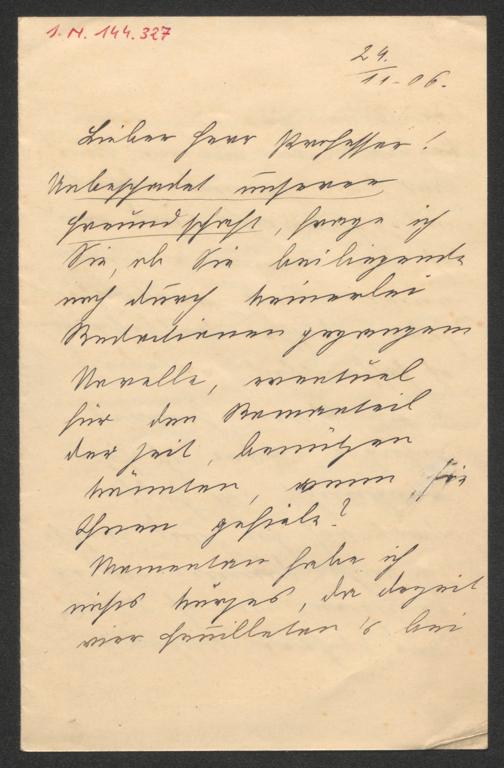 I. N. 144.327
29.
11-06.
Lieber Herr Professor!
Unbeschadet unserer
Freundschaft, frage ich
Sie, ob Sie beiliegende
noch durch keinerlei
Redactionen gegangene
Novelle, eventuel
für den Romanteil
der Zeit, benützen
könnten, wenn sie
Ihnen gefiele?
Momentan habe ich
nichts kürzes, da derzeit
vier Feuilleton's bei